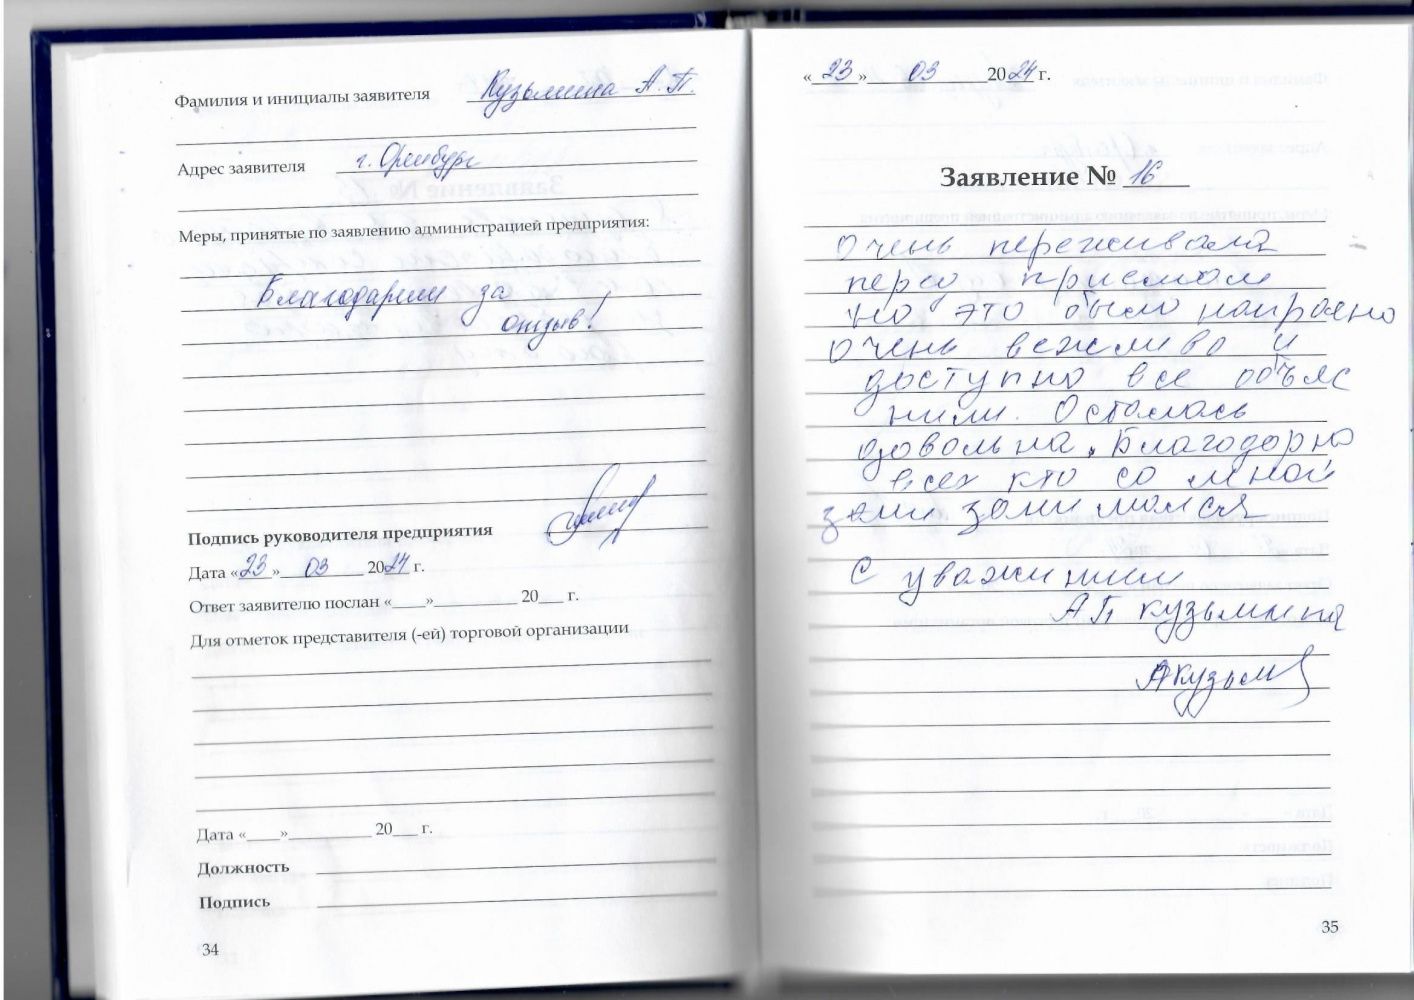 Фамилия и инициалы заявителя Кузьмина А.П.
Адрес заявителя г. Оренбург
Меры, принятые по заявлению администрацией предприятия:
Благодарим за
отзыв!
Подпись руководителя предприятия
Дата «23» 03 2024 г.
Ответ заявителю послан «___»__________ 20___ г.
Для отметок представителя (-ей) торговой организации
Дата «____»__________ 20___ г.
Должность
Подпись
34
«23» 03 2024 г.
Заявление № 16
Очень переживала
перед приемом
но это было напрасно
очень вежливо и
доступно все объяс
нили. Осталась
довольна. Благодарна
всех кто со мной
зани занимался
С уважинием
АП Кузьмина
АКузьм
35